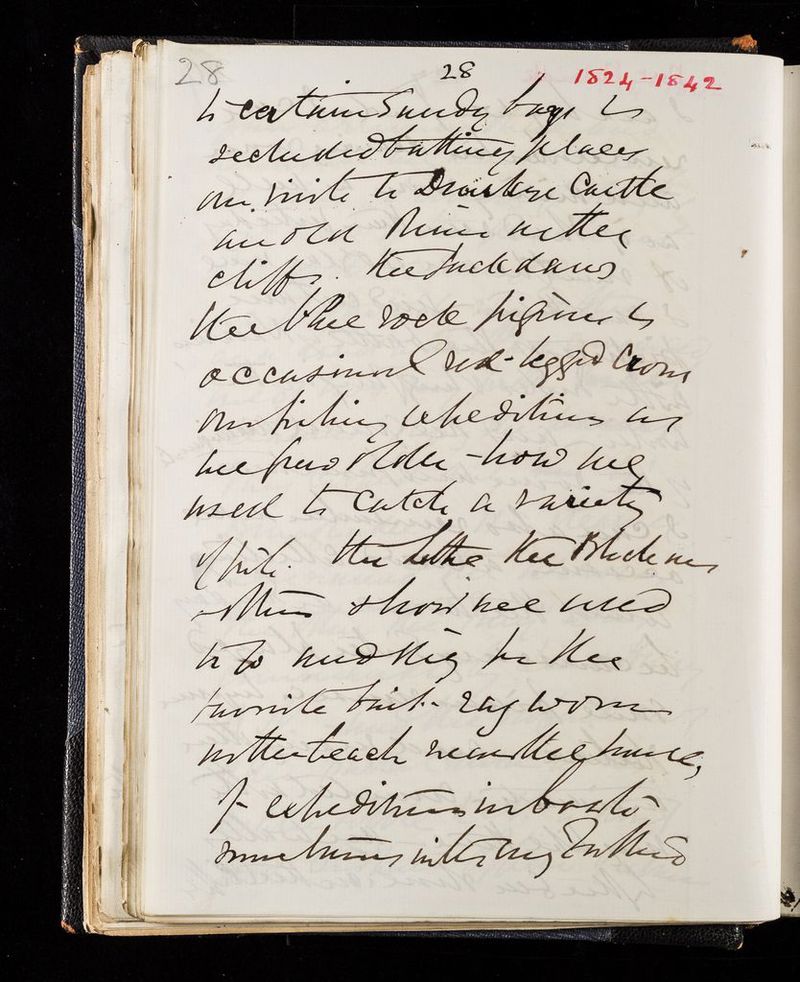 28 28 1824-1842
to certain Sandy bays &
secluded bathing places
our visits to Castle
an old Ruin in the
cliffs. the Jackdaws
the blue rock pigeons &
occasional red-legged Crow
our fishing expeditions as
we grew older - how we
used to catch a variety
of fish. the the Blackmen
others & how we used
to go mudding for the
favorite bait - rag worm
in the beach near the house,
of expeditions in boats
sometimes with my Father